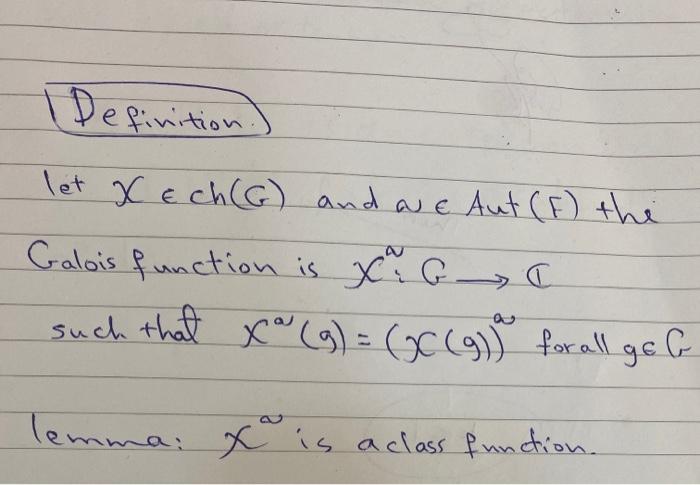 Definition.
let χ ∈ ch(G) and α ∈ Aut(F) the
Galois function is χ^α: G → ℂ
such that χ^α(g) = (χ(g))^α for all g ∈ G
lemma: χ^α is a class function.